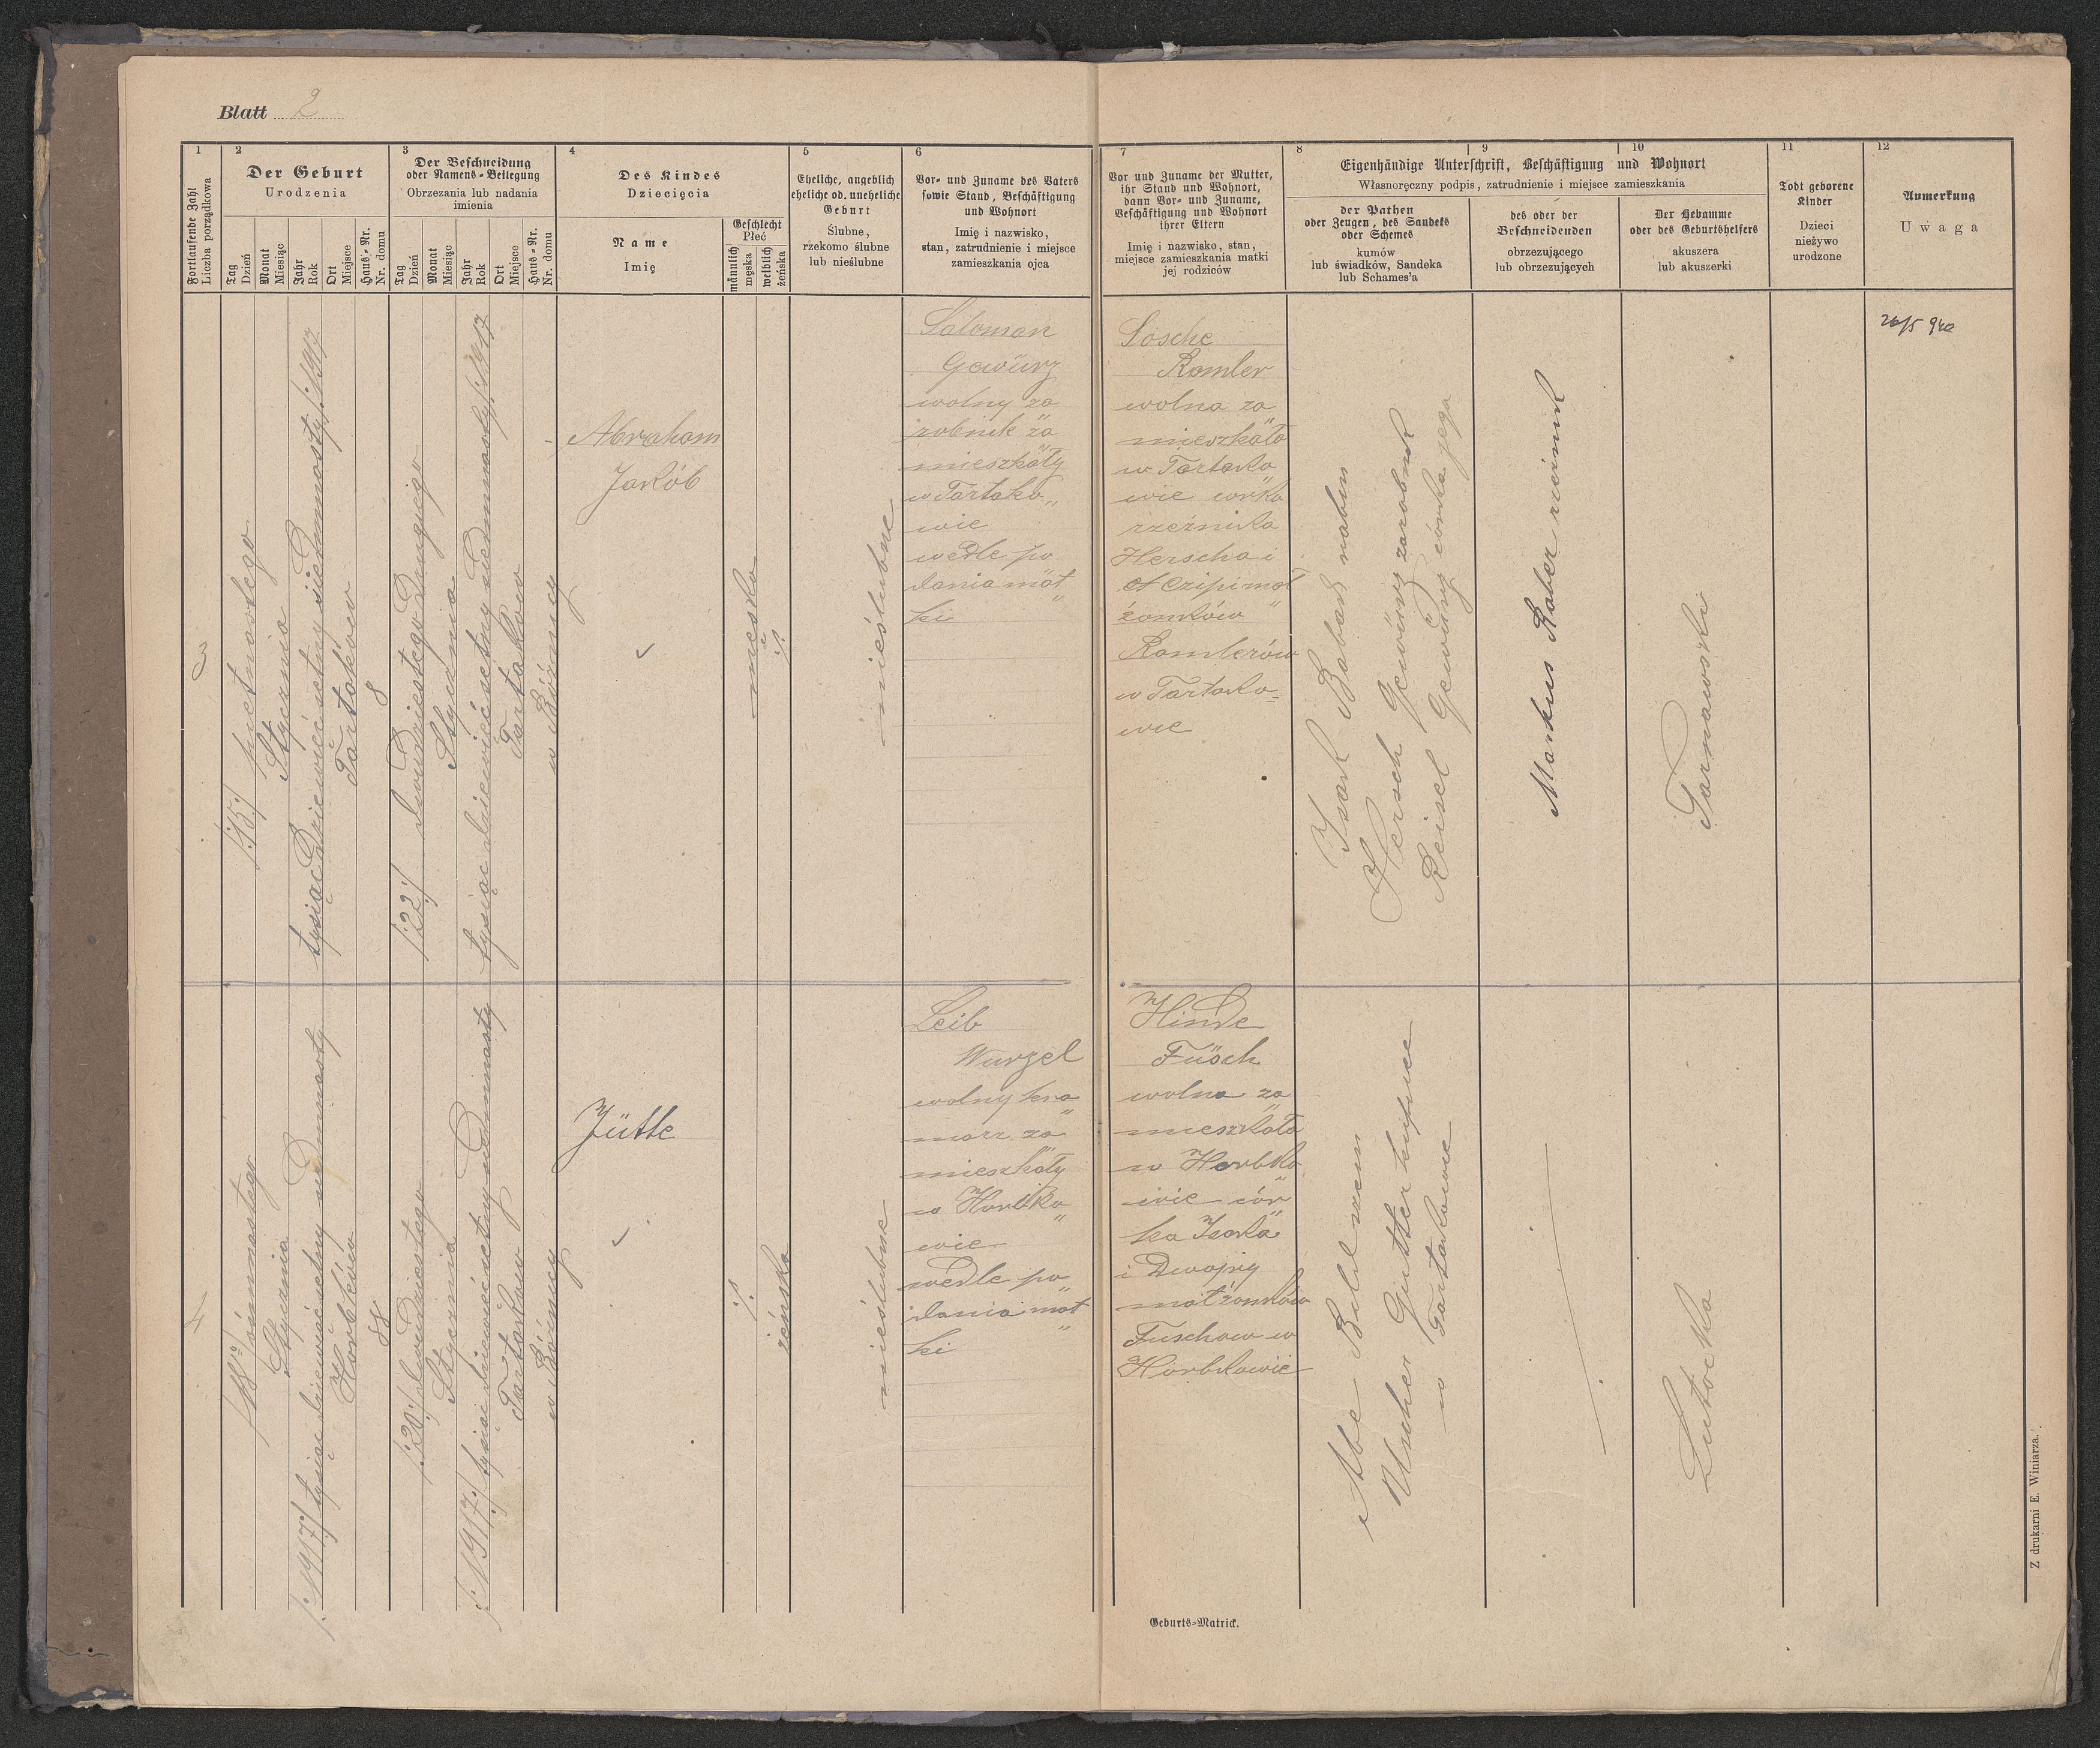 Blatt 2
1
Fortlaufende Zahl
Liczba porządkowa
2
Der Geburt
Urodzenia
Tag
Dzień
Monat
Miesiąc
Jahr
Rok
Ort
Miejsce
Haus-Nr.
Nr. domu
3
Der Beschneidung
oder Namens-Beilegung
Obrzezania lub nadania
imienia
Tag
Dzień
Monat
Miesiąc
Jahr
Rok
Ort
Miejsce
Haus-Nr.
Nr. domu
4
Des Kindes
Dziecięcia
Name
Imię
Geschlecht
Płeć
männlich
męska
weiblich
żeńska
5
Eheliche, angeblich
eheliche od. uneheliche
Geburt
Ślubne,
rzekomo ślubne
lub nieślubne
6
Vor- und Zuname des Vaters
sowie Stand, Beschäftigung
und Wohnort
Imię i nazwisko,
stan, zatrudnienie i miejsce
zamieszkania ojca
7
Vor und Zuname der Mutter,
ihr Stand und Wohnort,
dann Vor- und Zuname,
Beschäftigung und Wohnort
ihrer Eltern
Imię i nazwisko, stan,
miejsce zamieszkania matki
jej rodziców
8
9
10
Eigenhändige Unterschrift, Beschäftigung und Wohnort
Własnoręczny podpis, zatrudnienie i miejsce zamieszkania
der Pathen
oder Zeugen, des Sandeks
oder Schemes
kumów
lub świadków, Sandeka
lub Schames'a
des oder der
Beschneidenden
obrzezującego
lub obrzezujących
Der Hebamme
oder des Geburtshelfers
akuszera
lub akuszerki
11
Todt geborene
Kinder
Dzieci
nieżywo
urodzone
12
Anmerkung
Uwaga
3
/:15:/ piętnastego
Stycznia
tysiąc dziewięćsetny siedmnasty /:1917
Tartaków
8
/:22:/ dwudziestego drugiego
Stycznia
tysiąc dziewięćsetny siedmnasty /:1917
Tartaków
w Bóżnicy
Abraham
Jakób
męska
:/:
nieślubne
Saloman
Gewürz
wolny za
robnik za
mieszkały
w Tartako„
wie
wedle po
dania mat„
ki
Sosche
Romler
wolna za„
mieszkała
w Tartako
wie córka
rzeźnika
Herscha i
Czipi mał„
żonków
Romlerów
w Tartako=
wie
Isak Babad rabin
Hersch Gewürz zarobnik
Reisel Gewürz córka jego
Markus Raber rzeźnik
Tarnawski
26/5 940
4
/:18:/ ośmnastego
Stycznia
/:1917:/ tysiąc dziewięćsetny siedmnasty
Horbków
88
/:20:/ dwudziestego
Stycznia
/:1917:/ tysiąc dziewięćsetny siedmnasty
Tartaków
w Bóżnicy
Jütte
:/:
żeńska
nieślubne
Leib
Wurzel
wolny kra„
marz za„
mieszkały
w Horbko„
wie
wedle po„
dania mat„
ki
Hinde
Füsch
wolna za„
mieszkała
w Horbko„
wie cór„
ka Isaka
i Dwojry
małżonków
Fuschow w
Horbkowie
Abe
Uscher kupiec
w Tartakowie
Geburts-Matrick.
Z drukarni E. Winiarza.